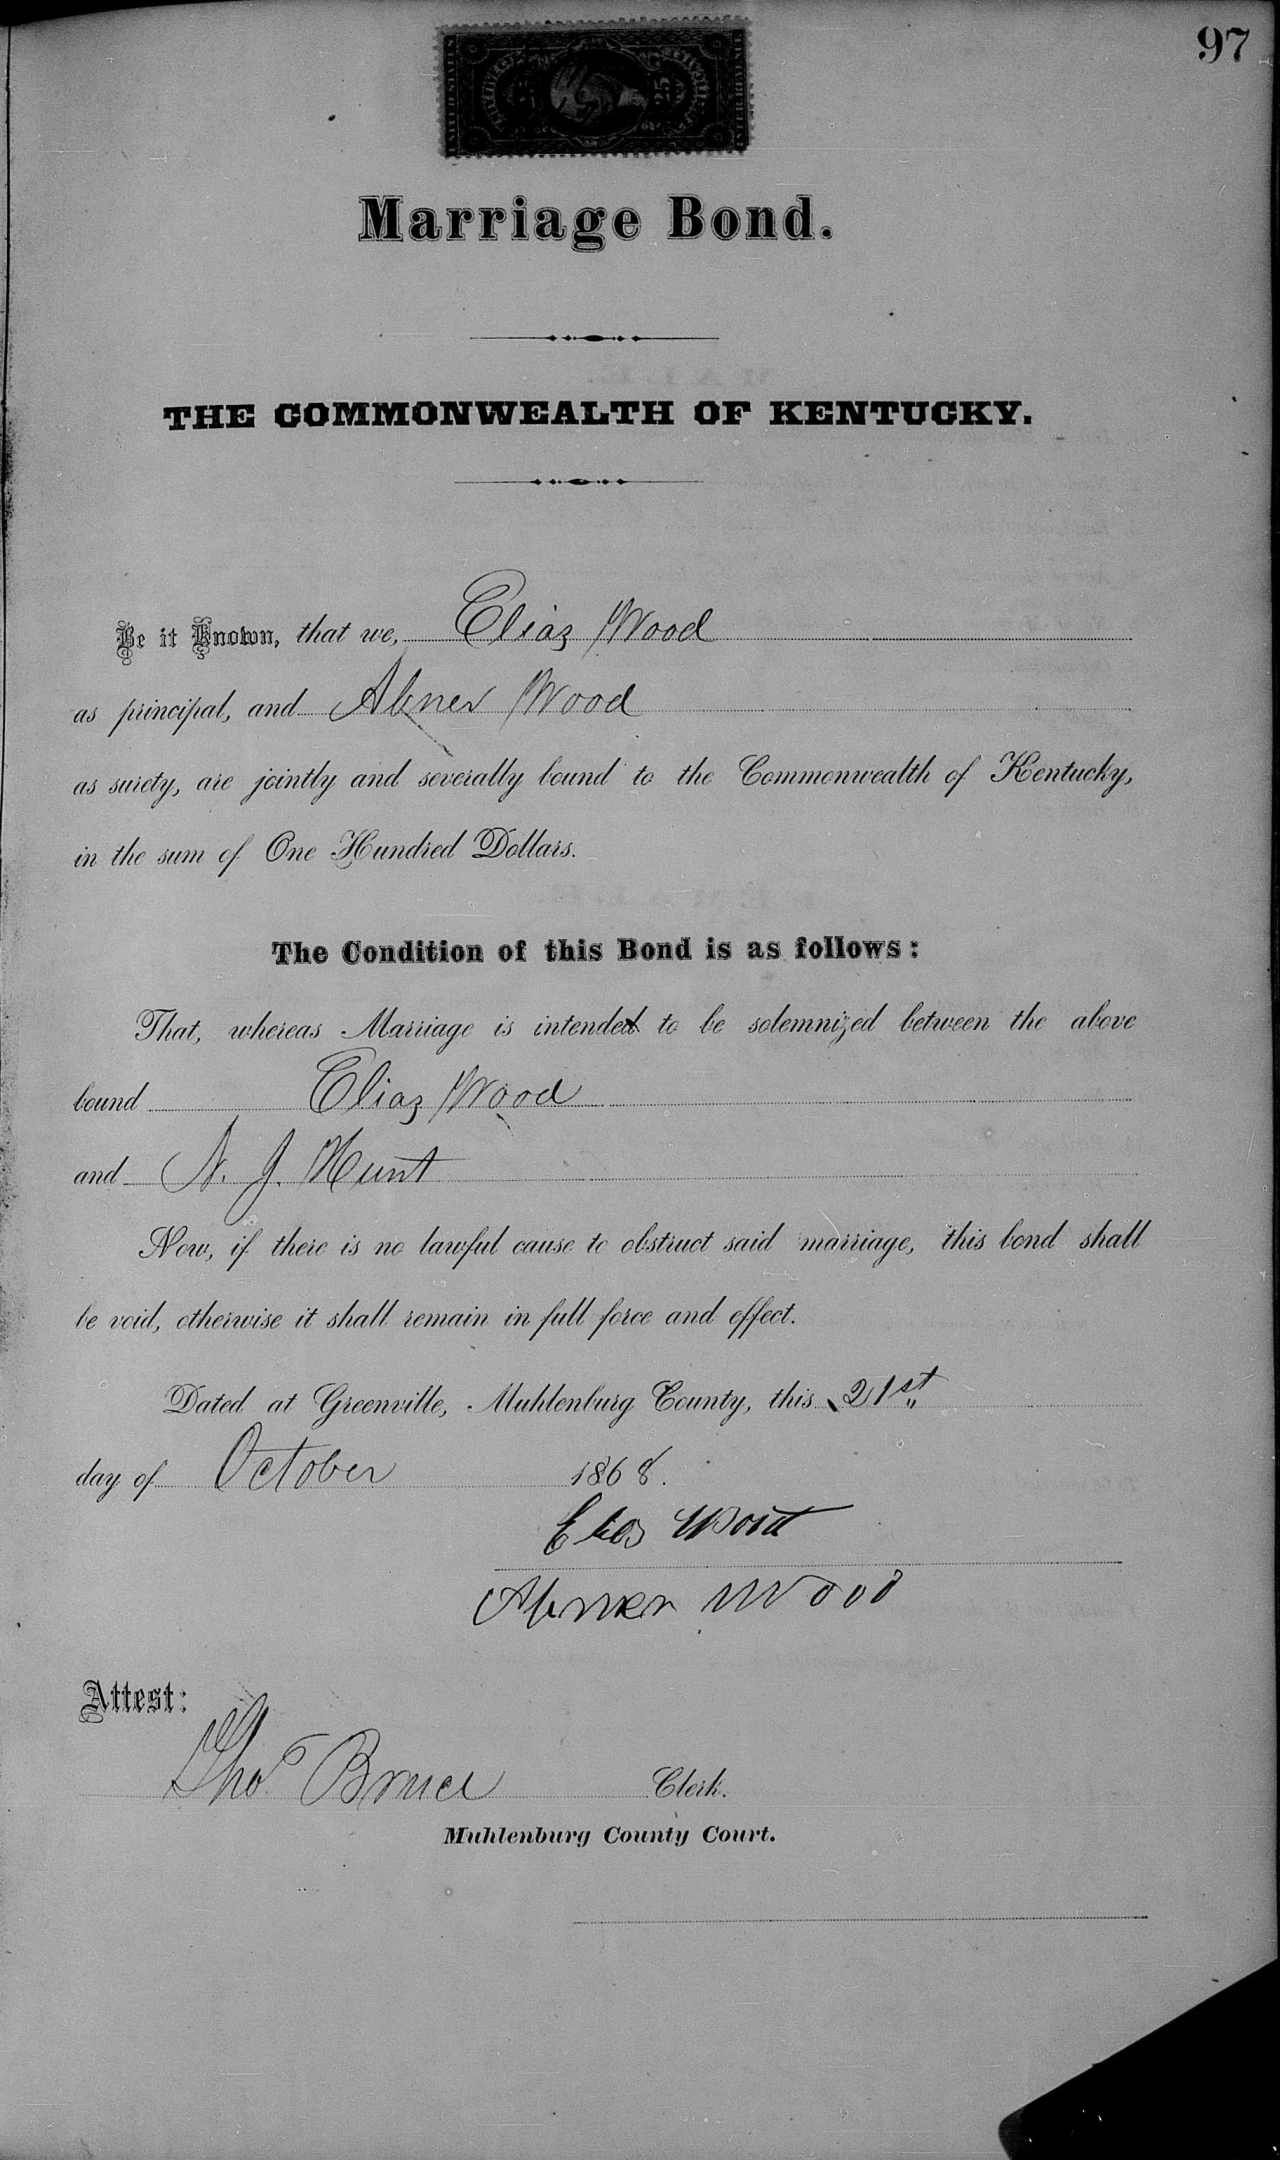 97
UNITED STATES
25 25
Marriage Bond.
THE COMMONWEALTH OF KENTUCKY.
Be it Known, that we, Eliaz Wood
as principal, and Abner Wood
as surety, are jointly and severally bound to the Commonwealth of Kentucky,
in the sum of One Hundred Dollars.
The Condition of this Bond is as follows:
That, whereas Marriage is intended to be solemnized between the above
bound Eliaz Wood
and N. J. Hunt
Now, if there is no lawful cause to obstruct said marriage, this bond shall
be void, otherwise it shall remain in full force and effect.
Dated at Greenville, Muhlenburg County, this 21st
day of October 1868.
Abner Wood
Attest:
Thos Bruce Clerk.
Muhlenburg County Court.